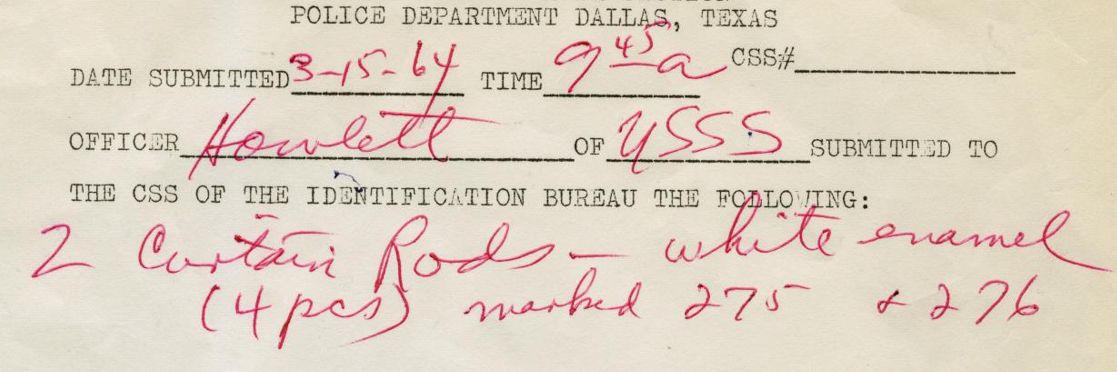 POLICE DEPARTMENT DALLAS, TEXAS
DATE SUBMITTED 3-15-64 TIME 9 45 a CSS#
OFFICER Howlett OF USSS SUBMITTED TO
THE CSS OF THE IDENTIFICATION BUREAU THE FOLLOWING:
2 Curtain Rods - white enamel
(4 pcs) marked 275 & 276